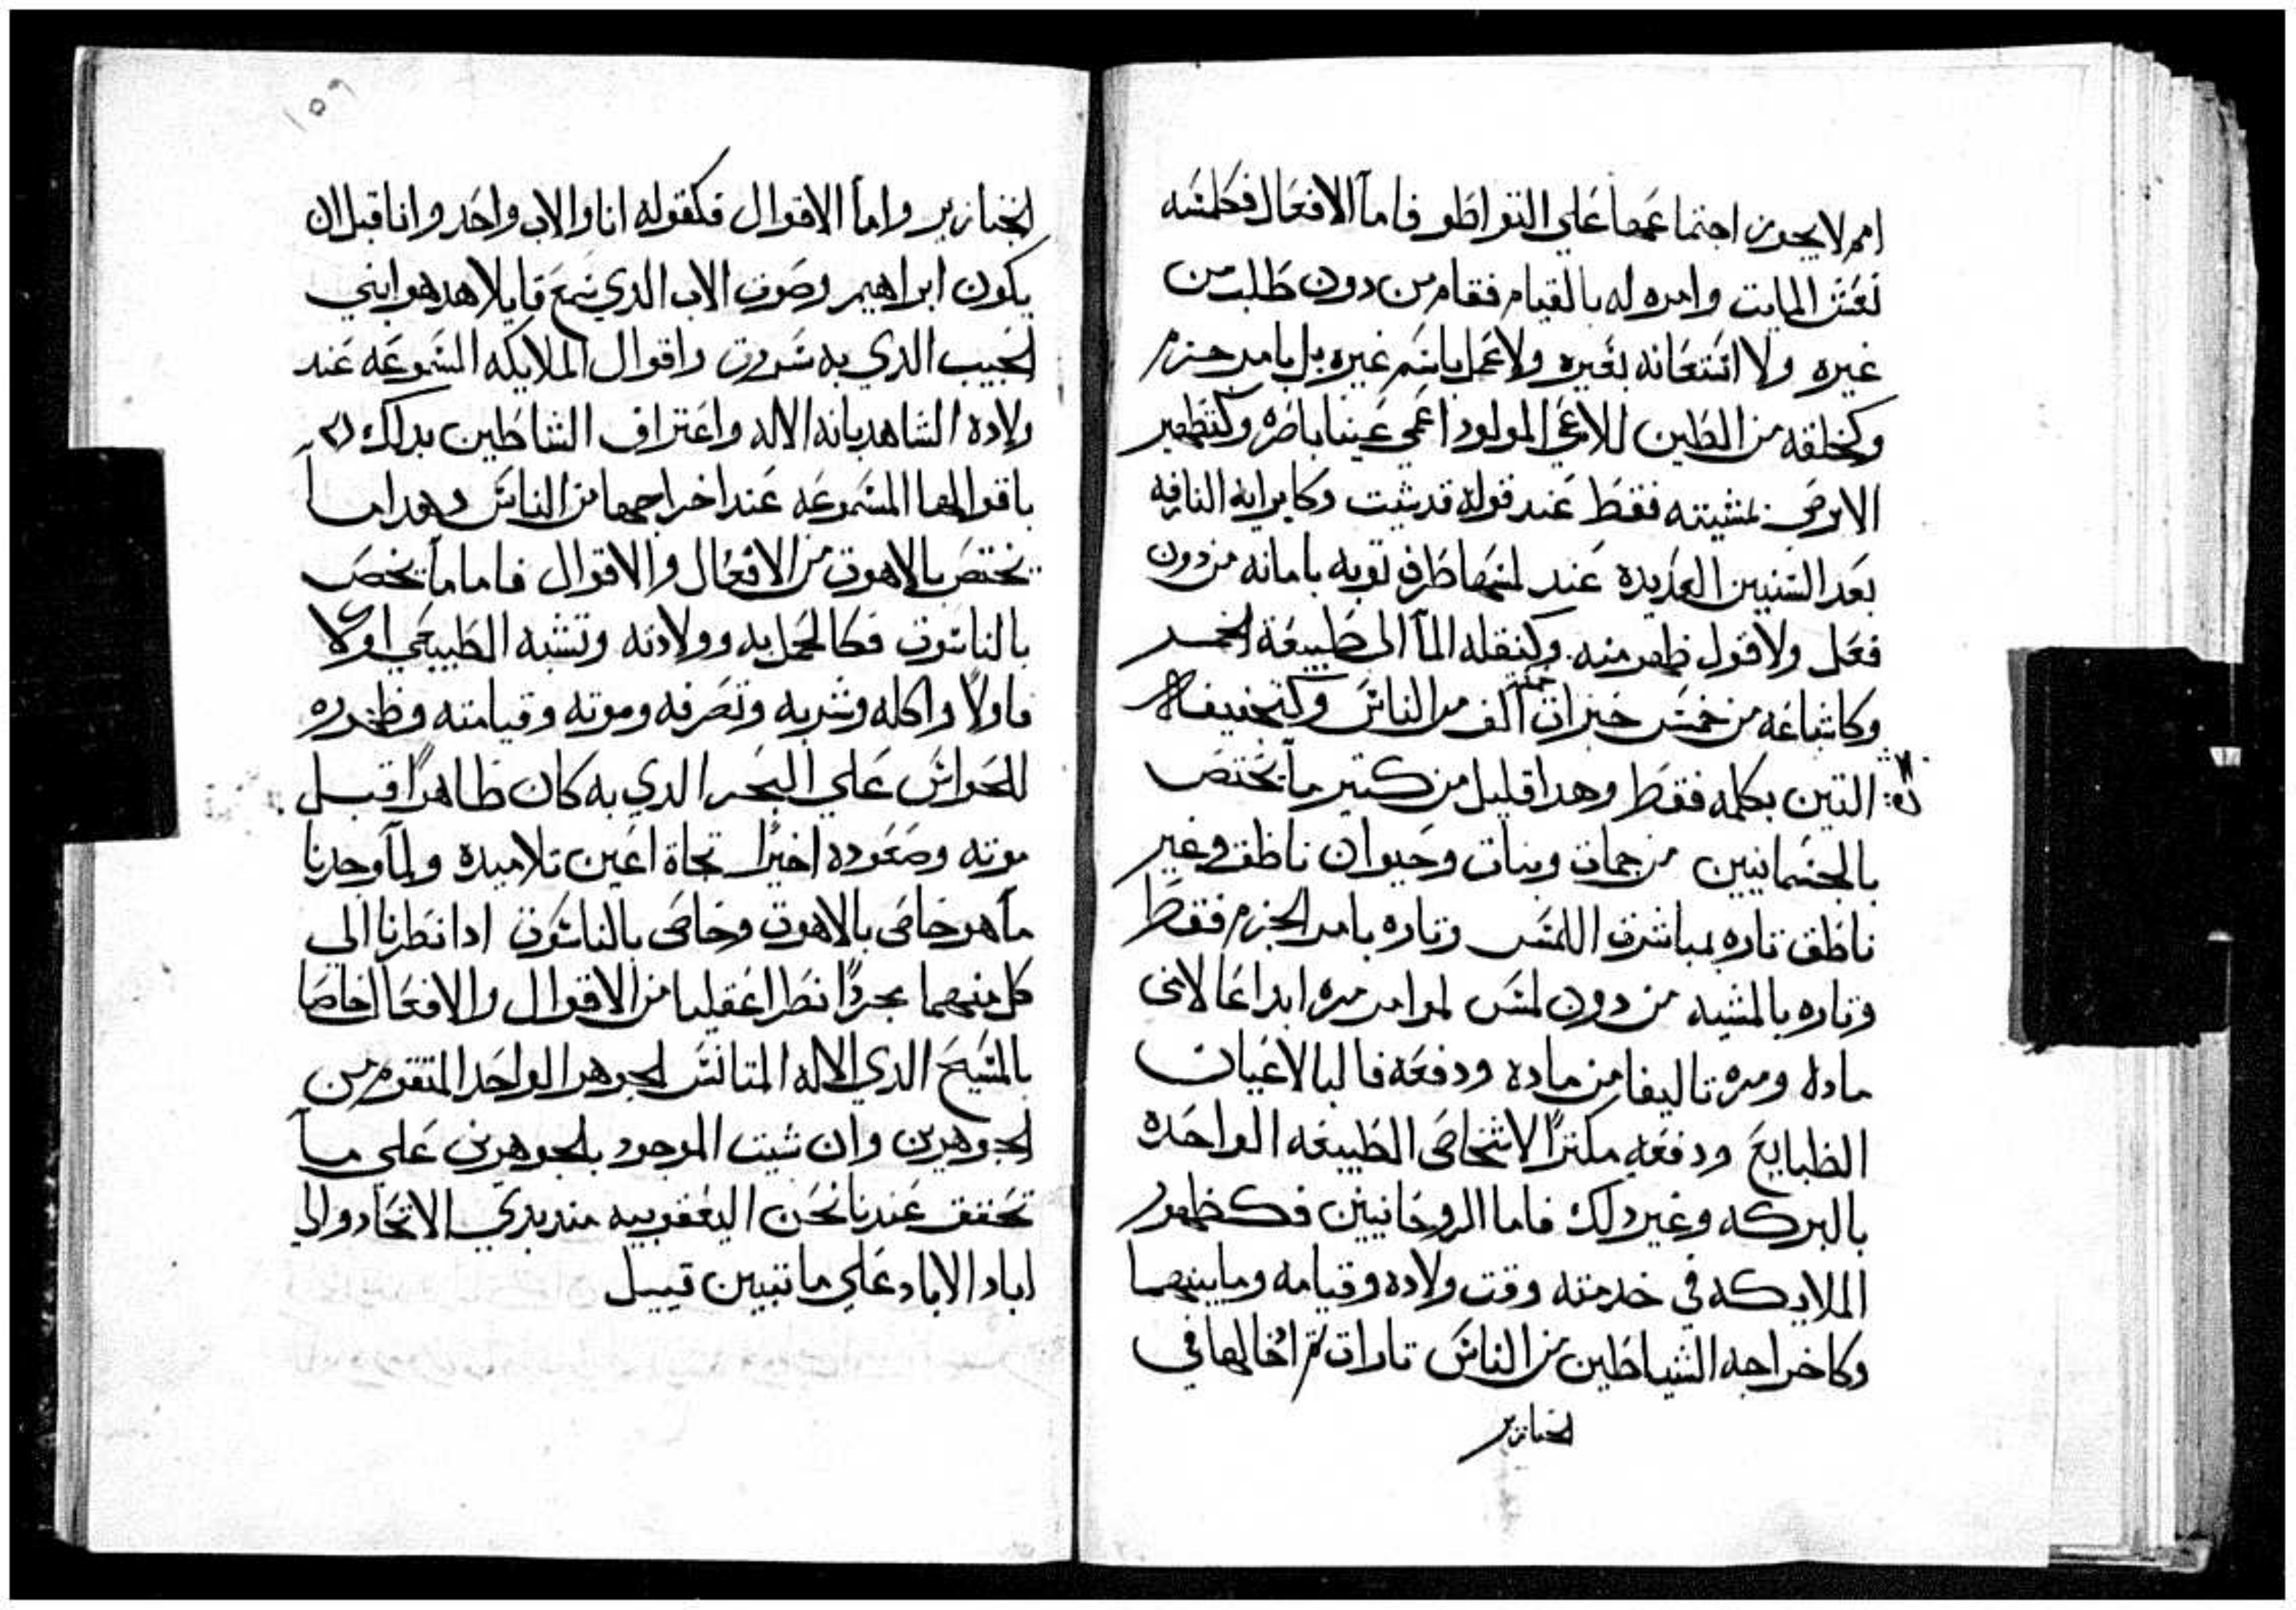 امم لا يجوز اجتماعها على التواطو فاما الافعال فكلمسه
نعش المايت وامره له بالقيام فقام من دون طلب من
غيره ولا استعانه بغيره ولا عمل باسم غيره بل بامر جزم
وكخلقه من الطين للاعمى المولود اعمى عينا باصره وكتطهير
الابرص بمشيته فقط عند قوله قد شيت وكابرايه النازفه
بعد السنين العديده عند لمسها طرف توبه بامانه من دون
فعل ولا قول ظهر منه وكنقله الما الى طبيعة الخمر
وكاشباعه من خمس خبزات الف من الناس وكتجفيف
التين بكلمه فقط وهدا قليل من كتير ما يختص
بالجسمانيين من جمات ونبات وحيوان ناطق وغير
ناطق تاره بمباشرة اللمس وتاره بامر الجزم فقط
وتاره بالمشيه من دون لمس او امر مره ابداعا لا في
ماده ومره تاليفا من ماده ودفعه قالبا لاعيان
الطبايع ودفعه مكترا لاشخاص الطبيعه الواحده
بالبركه وغير دلك فاما الروحانيين فكظهور
الملايكه في خدمته وقت ولاده وقيامه وما بينهما
وكاخراجه الشياطين من الناس تارات تم ادخالها في
الخنازير
١٥٩
الخنازير واما الاقوال فكقوله انا والاب واحد وانا قبل ان
يكون ابراهيم وصوت الاب الدي سمع قايلا هدا هو ابني
الحبيب الدي به سررت واقوال الملايكه المسموعه عند
ولاده الشاهد بانه الاله واعتراف الشاطين بدلك
باقوالها المسموعه عند اخراجها من الناس وهدا ما
يختص بالاهوت من الافعال والاقوال فاما ما يخص
بالناسوت فكالحمل به وولادته وتشبه الطبيعي اولا
فاولا واكله وشربه وتصرفه وموته وقيامته وظهوره
للحواس على البحر الدي به كان ظاهرا قبل
موته وصعوده اخيرا تجاة اعين تلاميده ولما وجدنا
ما هو خاص بالاهوت وخاص بالناسوت ادا نظرنا الى
كل منهما مجردا نظرا عقليا من الاقوال والافعال خاصا
بالمسيح الدي الاله المتانس الجوهر الواحد المتقوم من
الجوهرين وان شيت الموجود بالجوهرين على ما
تحقق عندنا نحن اليعقوبيه مند بدي الاتحاد والى
اباد الاباد على ما تبيين قبيل